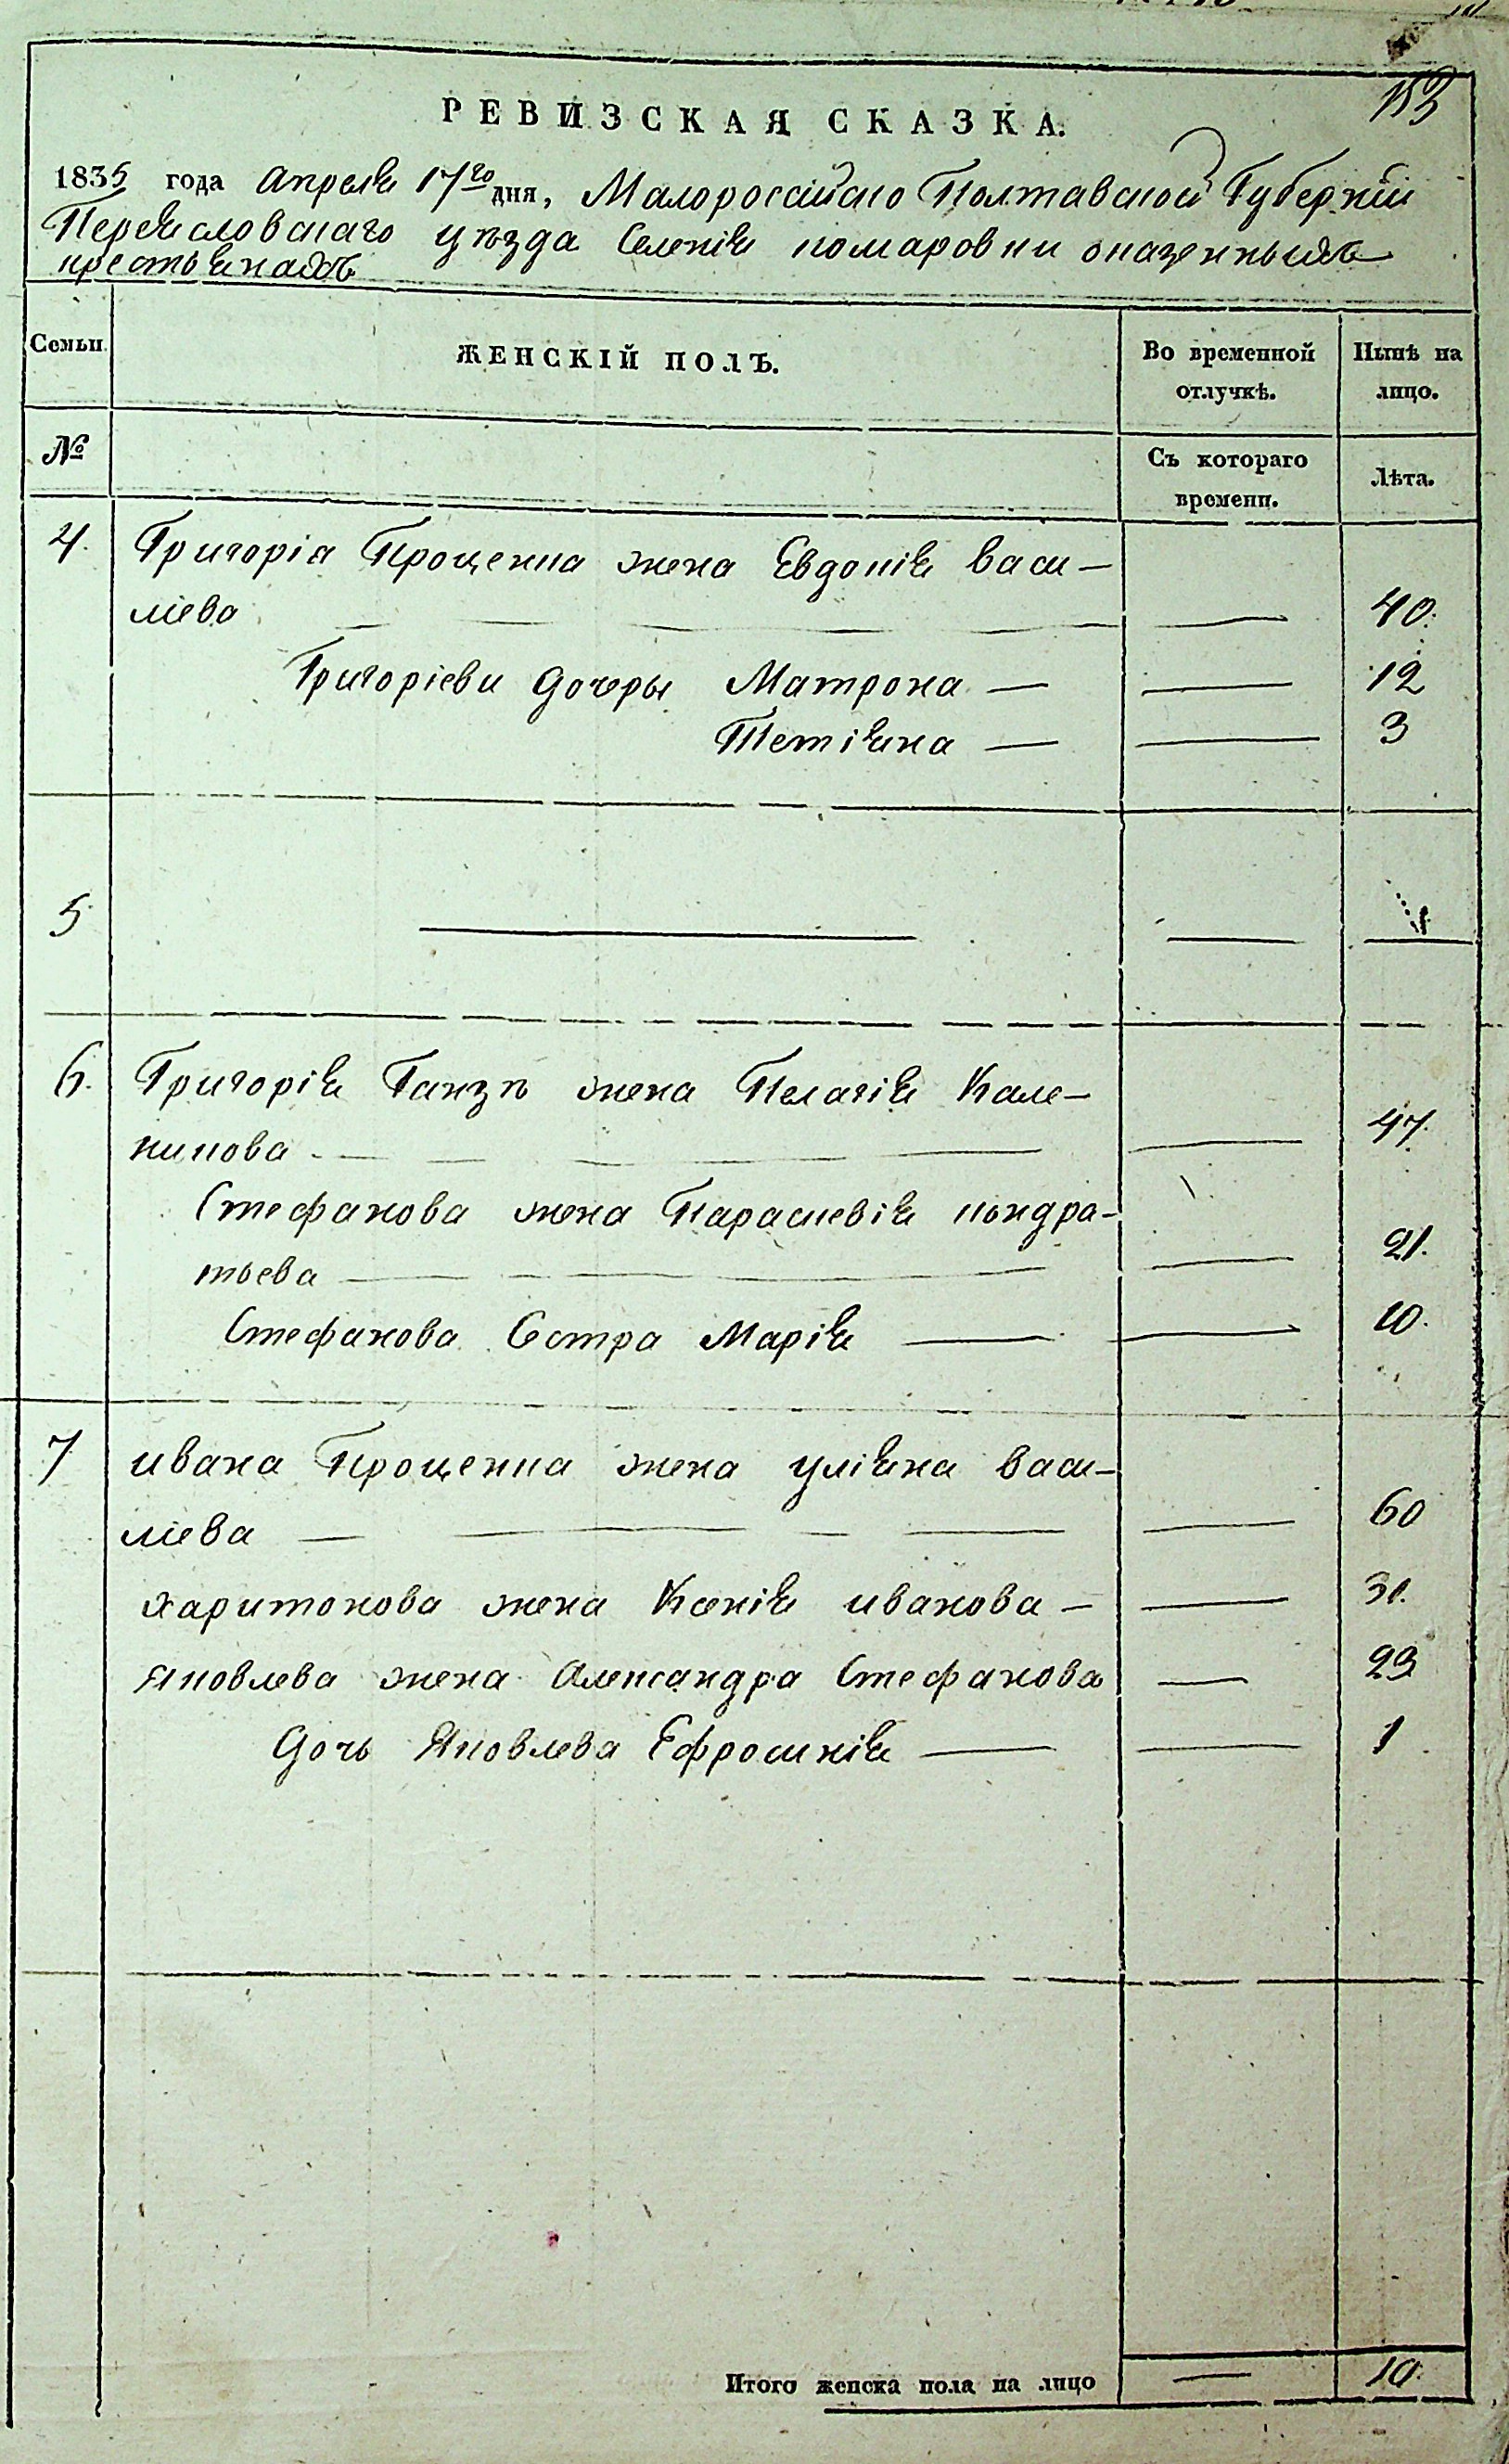 153
РЕВИЗСКАЯ СКАЗКА.
1835 года Апреля 17го дня, Малороссійско Полтавской Губерніи
Переяславскаго уѣзда Селенія комаровки оказенныхъ
крестьянахъ
Семьи ЖЕНСКІЙ ПОЛЪ. Во временной Нынѣ на
отлучкѣ. лицо.
№ Съ котораго Лѣта.
времени.
4. Григоріа Проценка жена Евдокія васи-
ліева 40.
Григоріеви дочеры Матрона 12
Тетіяна 3
5
6. Григорія Ганзѣ жена Пелагія Кале-
никова 47.
Стефанова жена Параскевія кондра-
тьева 21.
Стефанова Сестра Марія 10.
7 ивана Проценка жена уліяна васи-
ліева 60
харитонова жена Ксенія иванова 31.
Яковлева жена Александра Стефанова 23
Дочь Яковлева Ефросинія 1
Итого женска пола на лицо 10.